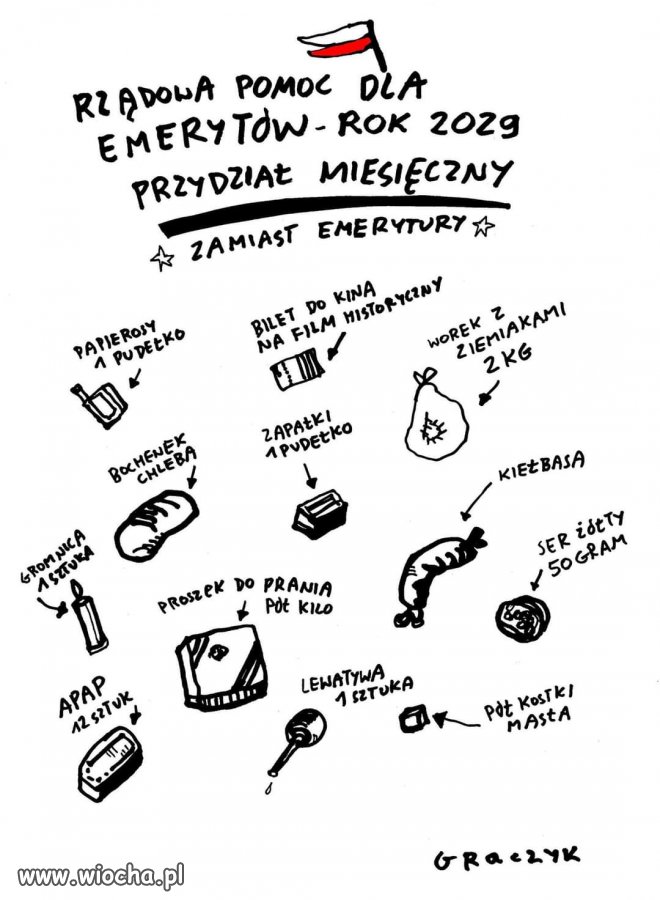 RZĄDOWA POMOC DLA
EMERYTÓW - ROK 2029
PRZYDZIAŁ MIESIĘCZNY
ZAMIAST EMERYTURY
PAPIEROSY
1 PUDEŁKO
BILET DO KINA
NA FILM HISTORYCZNY
WOREK Z
ZIEMIAKAMI
2 KG
BOCHENEK
CHLEBA
ZAPAŁKI
1 PUDEŁKO
KIEŁBASA
GROMNICA
1 SZTUKA
PROSZEK DO PRANIA
PÓŁ KILO
SER ŻÓŁTY
50 GRAM
APAP
12 SZTUK
LEWATYWA
1 SZTUKA
PÓŁ KOSTKI
MASŁA
GRaczYK
www.wiocha.pl